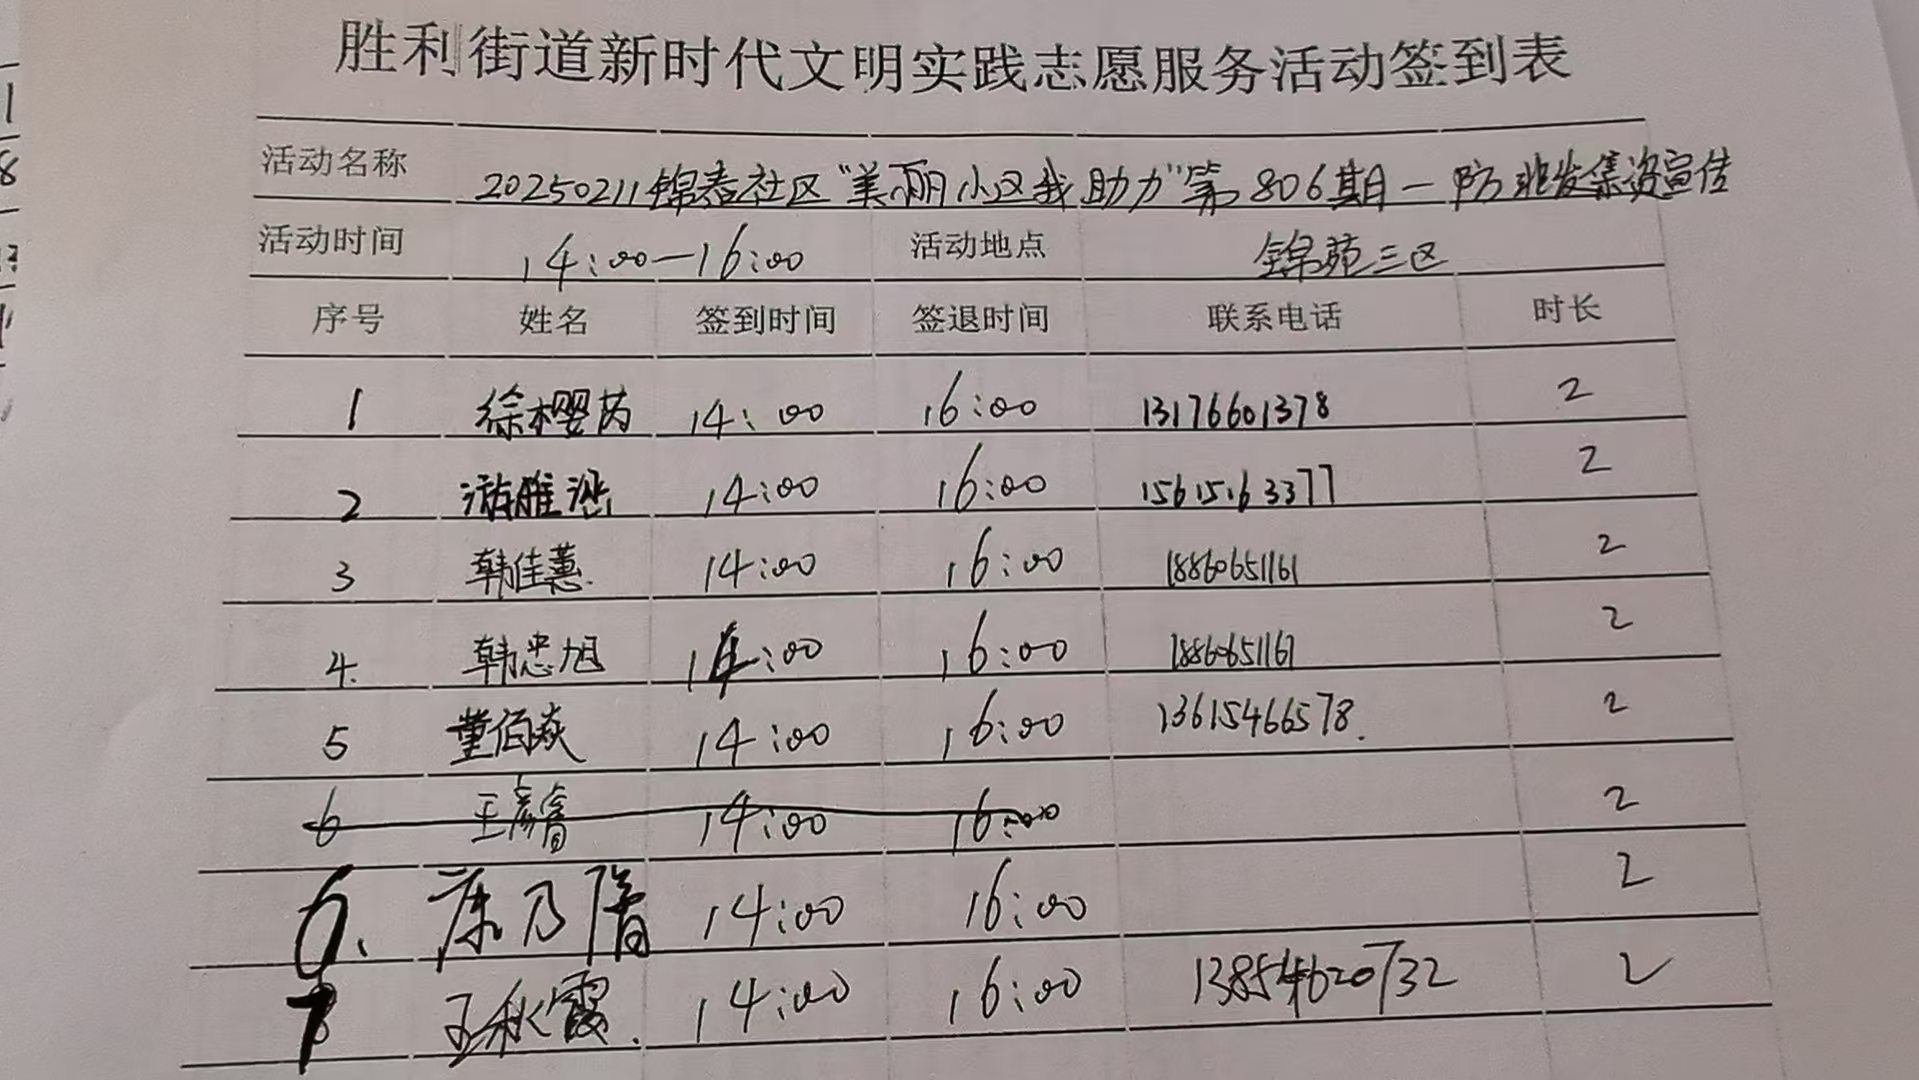 胜利街道新时代文明实践志愿服务活动签到表
活动名称 20250211锦春社区“美丽小区我助力”第806期—防非发集资宣传
活动时间 14:00—16:00 活动地点 锦苑三区
序号 姓名 签到时间 签退时间 联系电话 时长
1 徐樱芮 14:00 16:00 13176601378 2
2 游雅涵 14:00 16:00 15615163377 2
3 韩佳蕙 14:00 16:00 18860651161 2
4. 韩忠旭 14:00 16:00 18860651161 2
5 董佰焱 14:00 16:00 13615466578. 2
6 王彦睿 14:00 16:00 2
6. 康乃 14:00 16:00 2
7 王秋霞. 14:00 16:00 13854620732 2